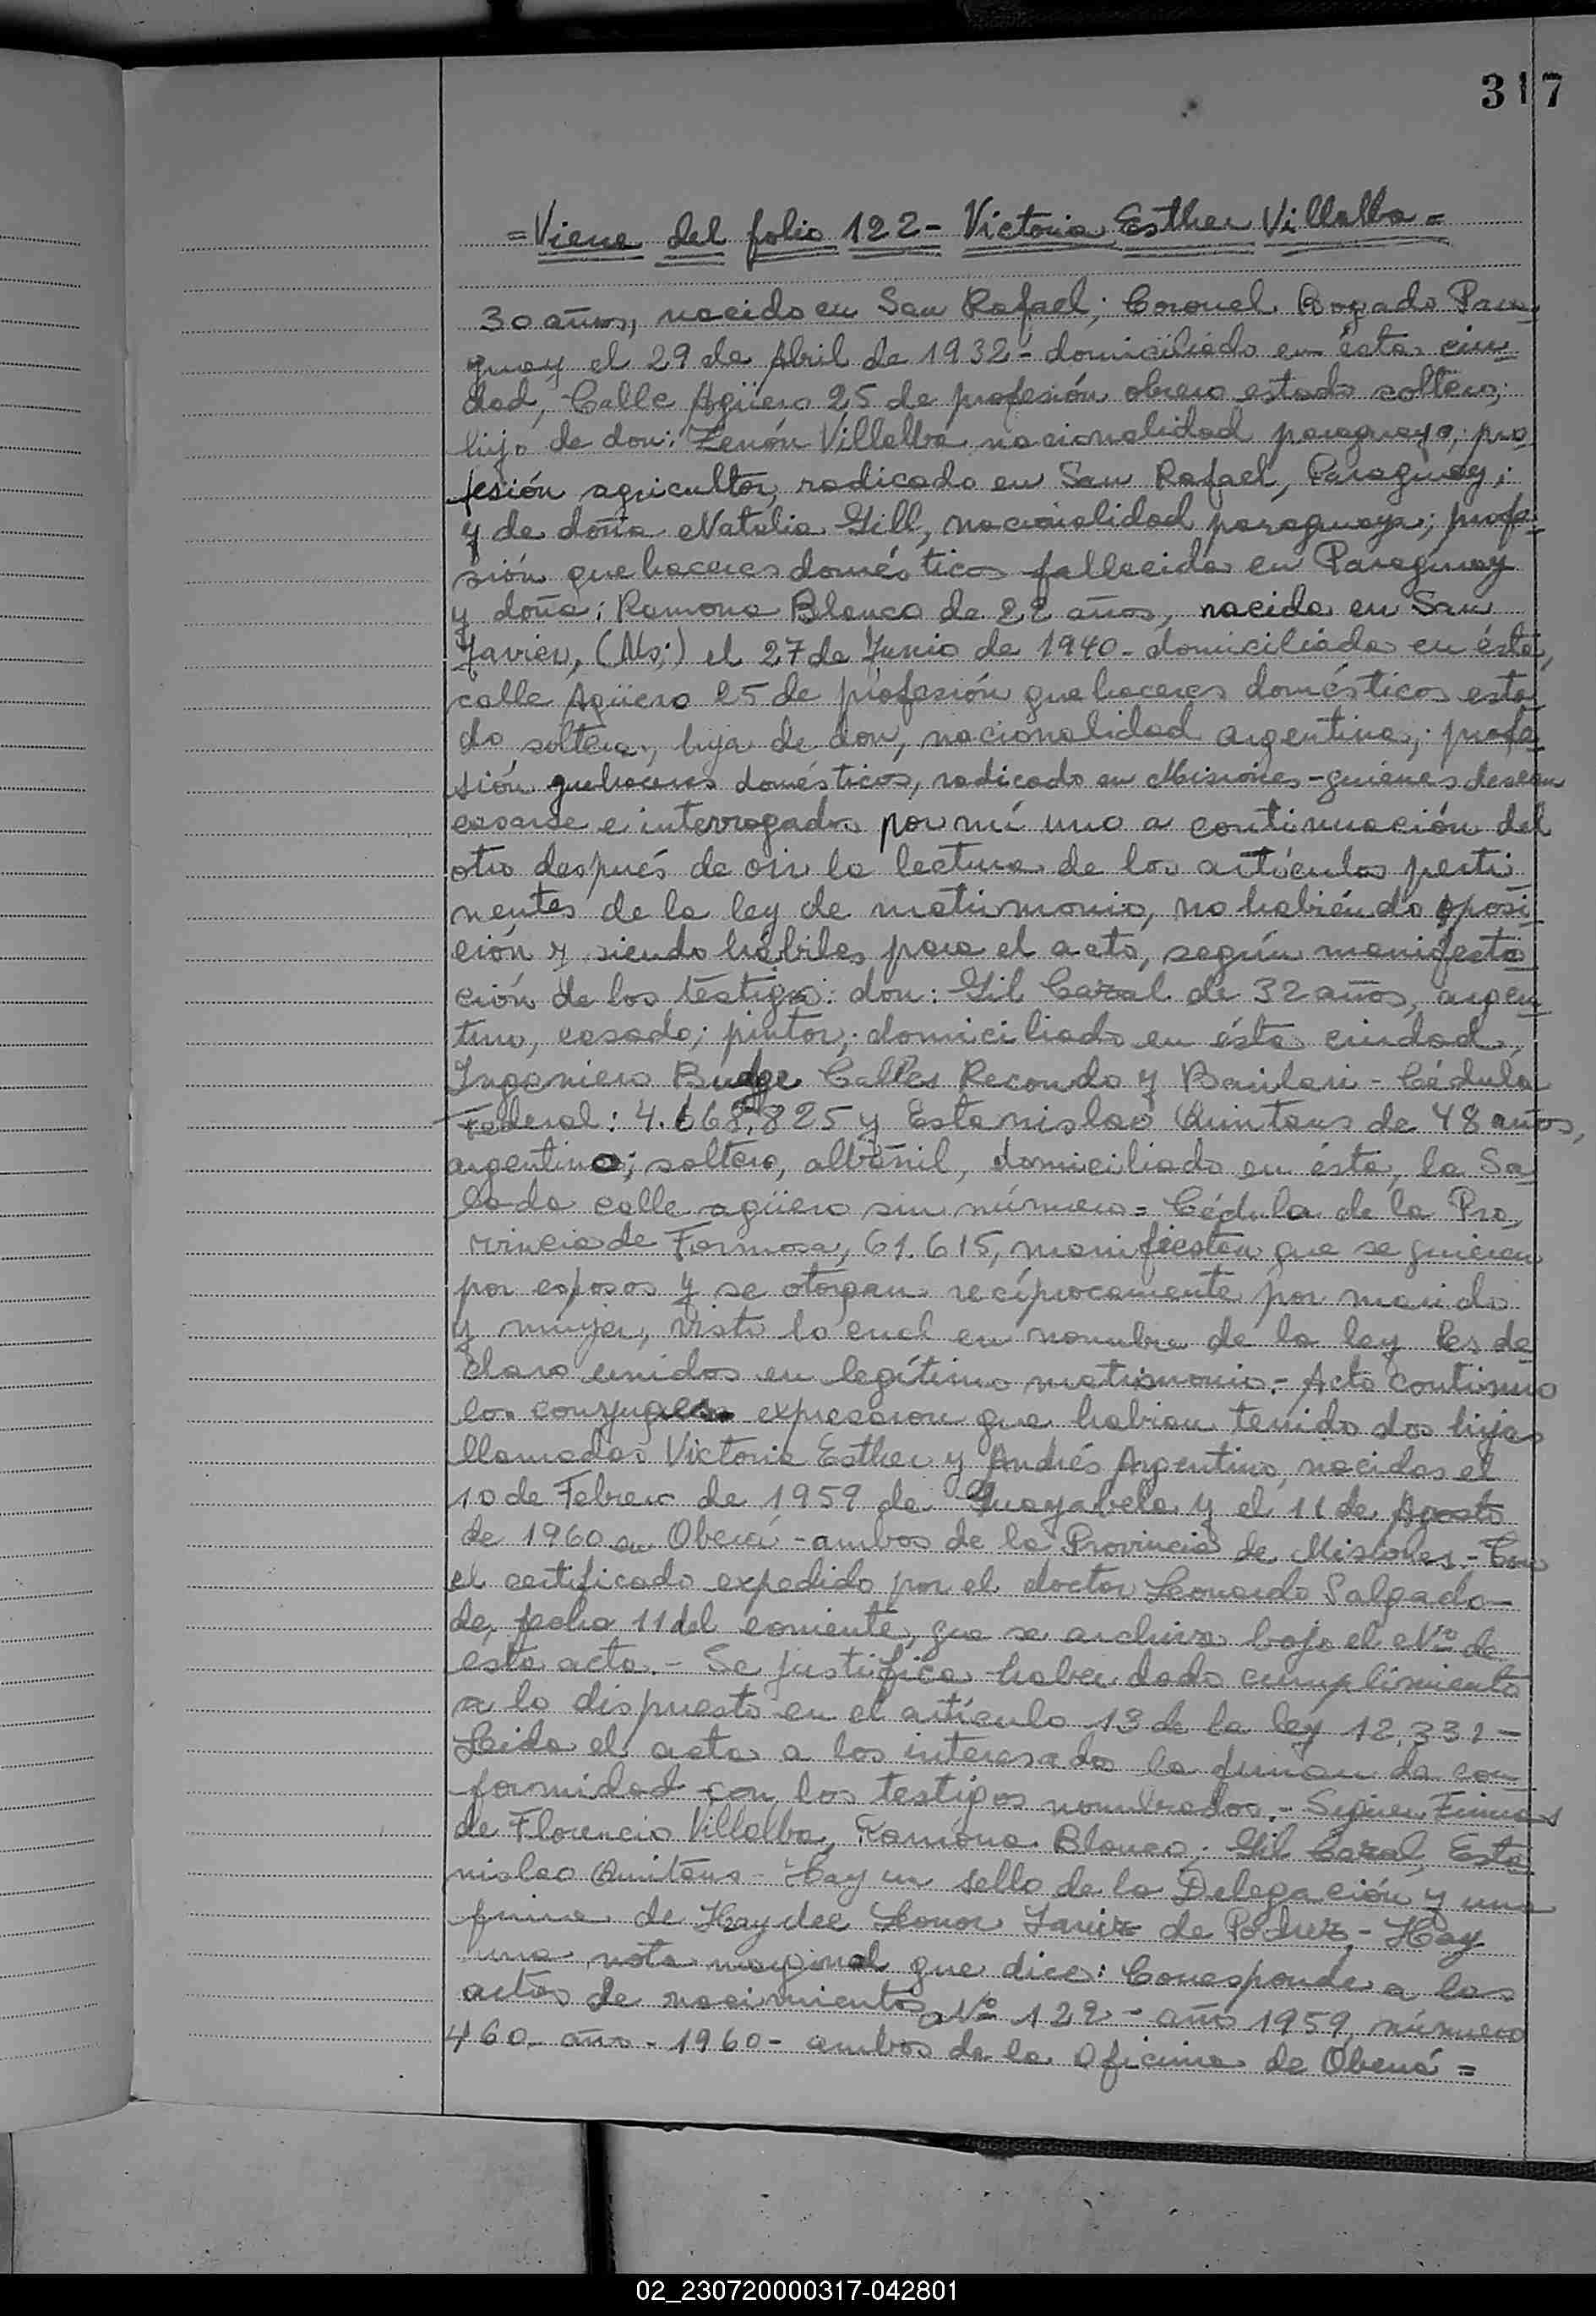 317
=Viene del folio 122- Victoria Esther Villalba=
30 años, nacido en San Rafael; Coronel Bogado Para
guay el 29 de Abril de 1932- domiciliado en ésta ciu
dad, Calle Agüero 25 de profesión obrero estado soltero;
hijo de don: Zenón Villalba nacionalidad paraguayo; pro
fesión agricultor, radicado en San Rafael, Paraguay;
y de doña Natalia Gill, nacionalidad paraguaya; profe
sión quehaceres domésticos fallecida en Paraguay
y doña: Ramona Blanco de 22 años, nacida en San
Javier, (Ms;) el 27 de Junio de 1940- domiciliada en ésta,
calle Agüero 25 de profesión quehaceres domésticos esta
do, soltera, hija de don, nacionalidad argentina; profe
sión quehaceres domésticos, radicado en Misiones-quienes desean
casarse e interrogados por mí uno a continuación del
otro después de oir la lectura de los artículos perti
nentes de la ley de matrimonio, no habiendo oposi
ción y siendo hábiles para el acto, según manifesta
ción de los testigos: don: Gil Cazal de 32 años, argen
tino, casado; pintor; domiciliado en ésta ciudad,
Ingeniero Budge Calles Recondo y Bailari - Cédula
Federal: 4.668.825 y Estanislao Quintans de 48 años,
argentino; soltero, albañil, domiciliado en ésta, la Sa
lada calle agüero sin número= Cédula de la Pro
vincia de Formosa, 61.615, manifiestan que se quieren
por esposos y se otorgan recíprocamente por marido
y mujer, visto lo cual en nombre de la ley les de
claro unidos en legítimo matrimonio.- Acto continuo
los conyuges expresaron que habian tenido dos hijos
llamados Victoria Esther y Andrés Argentino, nacidos el
10 de Febrero de 1959 de Guayabela y el 11 de Agosto
de 1960 en Oberá -ambos de la Provincia de Misiones.- Con
el certificado expedido por el doctor Leonardo Salgado-
de, fecha 11 del corriente, que se archiva bajo el Nº de
esta acta.- Se justifica haber dado cumplimiento
a lo dispuesto en el artículo 13 de la ley 12.331-
Leida el acta a los interesados la firman de con
formidad con los testigos nombrados.- Siguen Firmas
de Florencio Villalba, Ramona Blanco; Gil Cazal, Esta
nislao Quintans- Hay un sello de la Delegación y una
firma de Haydee Leonor de - Hay
una nota marginal que dice: Corresponde a las
actas de nacimientos Nº 129- año 1959, número
460- año- 1960- ambos de la Oficina de Oberá=
02_230720000317-042801